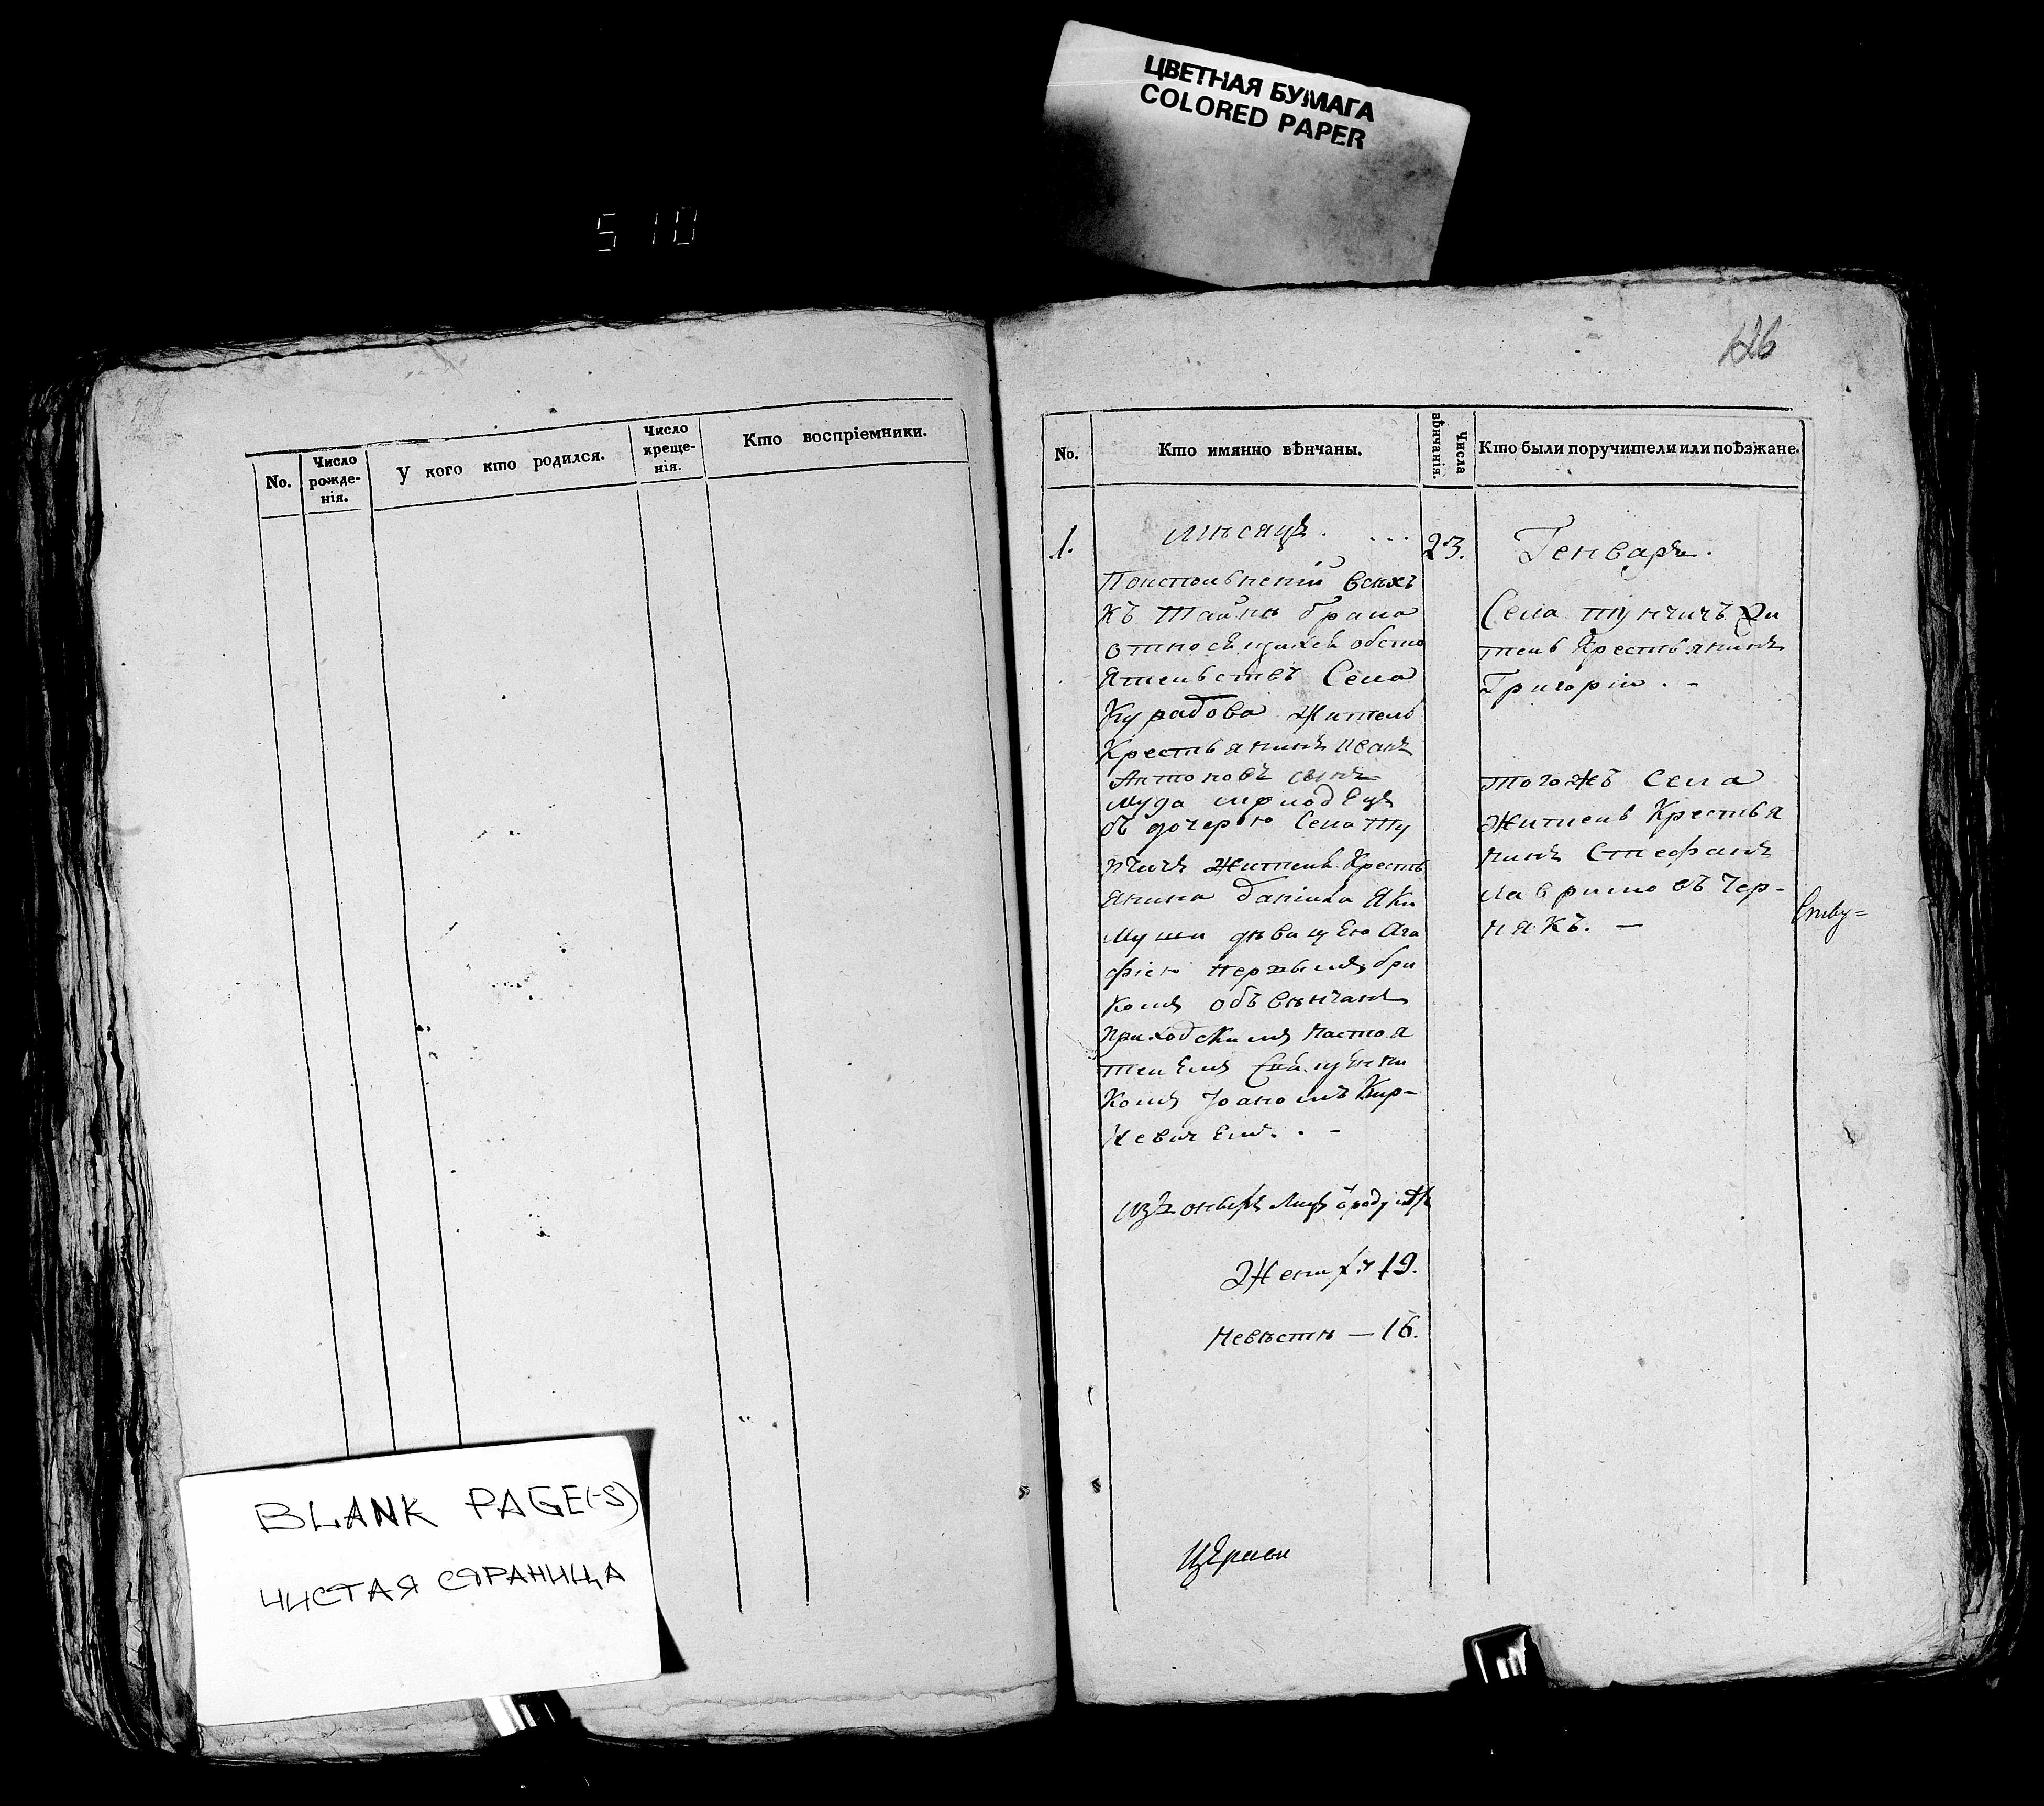 ЦВЕТНАЯ БУМАГА
COLORED PAPER
510
126
No.
Число рожде- нія.
У кого кто родился.
Число креще- нія.
Кто воспріемники.
No.
Кто имянно вѣнчаны.
Числа вѣнчанія.
Кто были поручители или поѣзжане.
1.
мѣсяцъ.
23.
Генварь.
По исполненіи всѣхъ
къ тайнѣ брака
относящихся обсто
ятельствъ Села
Житель
Крестьянинъ Иванъ
Антоновъ сынъ
съ дочерью Села Ту
нчичъ жителя Кресть
янина Даніила Яки
дѣвицею Ага
фіею первымъ бра
комъ обвѣнчанъ
приходскимъ настоя
телемъ Священни
комъ Іоаномъ Кир-
кевичемъ. . -
Женихъ 19.
Невѣстѣ — 16.
Села Тунчичъ жи
тель Крестьянинъ
Григорій . -
тогожъ Села
житель Крестья
нинъ Стефанъ
Чер-
някъ. —
Церкви
BLANK PAGE(-S)
ЧИСТАЯ СТРАНИЦА